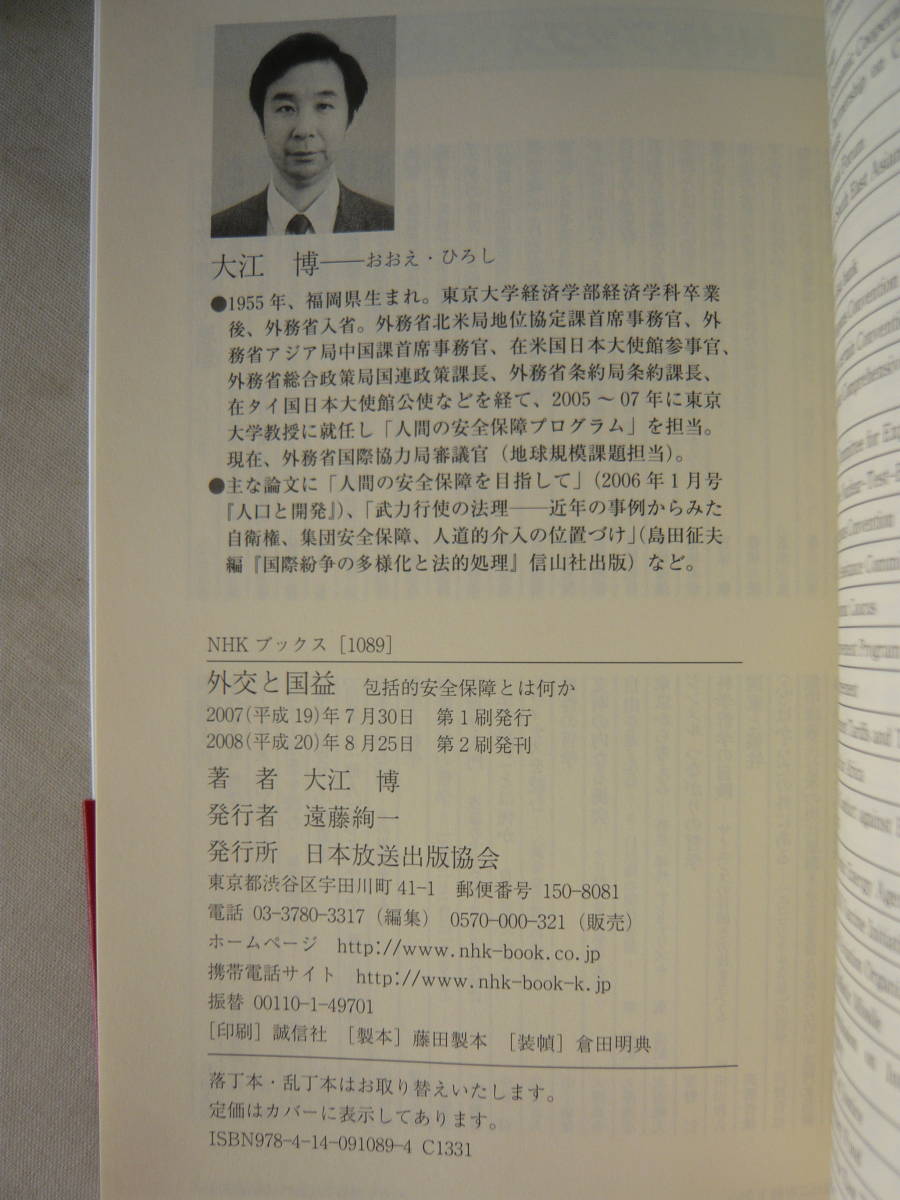 大江 博――おおえ・ひろし
●1955年、福岡県生まれ。東京大学経済学部経済学科卒業
後、外務省入省。外務省北米局地位協定課首席事務官、外
務省アジア局中国課首席事務官、在米国日本大使館参事官、
外務省総合政策局国連政策課長、外務省条約局条約課長、
在タイ国日本大使館公使などを経て、2005～07年に東京
大学教授に就任し「人間の安全保障プログラム」を担当。
現在、外務省国際協力局審議官（地球規模課題担当）。
●主な論文に「人間の安全保障を目指して」（2006年1月号
『人口と開発』）、「武力行使の法理――近年の事例からみた
自衛権、集団安全保障、人道的介入の位置づけ」（島田征夫
編『国際紛争の多様化と法的処理』信山社出版）など。
NHKブックス［1089］
外交と国益 包括的安全保障とは何か
2007（平成19）年7月30日 第1刷発行
2008（平成20）年8月25日 第2刷発刊
著 者 大江 博
発行者 遠藤絢一
発行所 日本放送出版協会
東京都渋谷区宇田川町41-1 郵便番号 150-8081
電話 03-3780-3317（編集） 0570-000-321（販売）
ホームページ http://www.nhk-book.co.jp
携帯電話サイト http://www.nhk-book-k.jp
振替 00110-1-49701
［印刷］誠信社 ［製本］藤田製本 ［装幀］倉田明典
落丁本・乱丁本はお取り替えいたします。
定価はカバーに表示してあります。
ISBN978-4-14-091089-4 C1331
on
Forum
East Asian
Bank
Convention
Convention
Comprehensive
for
Convention
Taurus
Program
Tariffs and
Africa
against
Energy
Missile
on